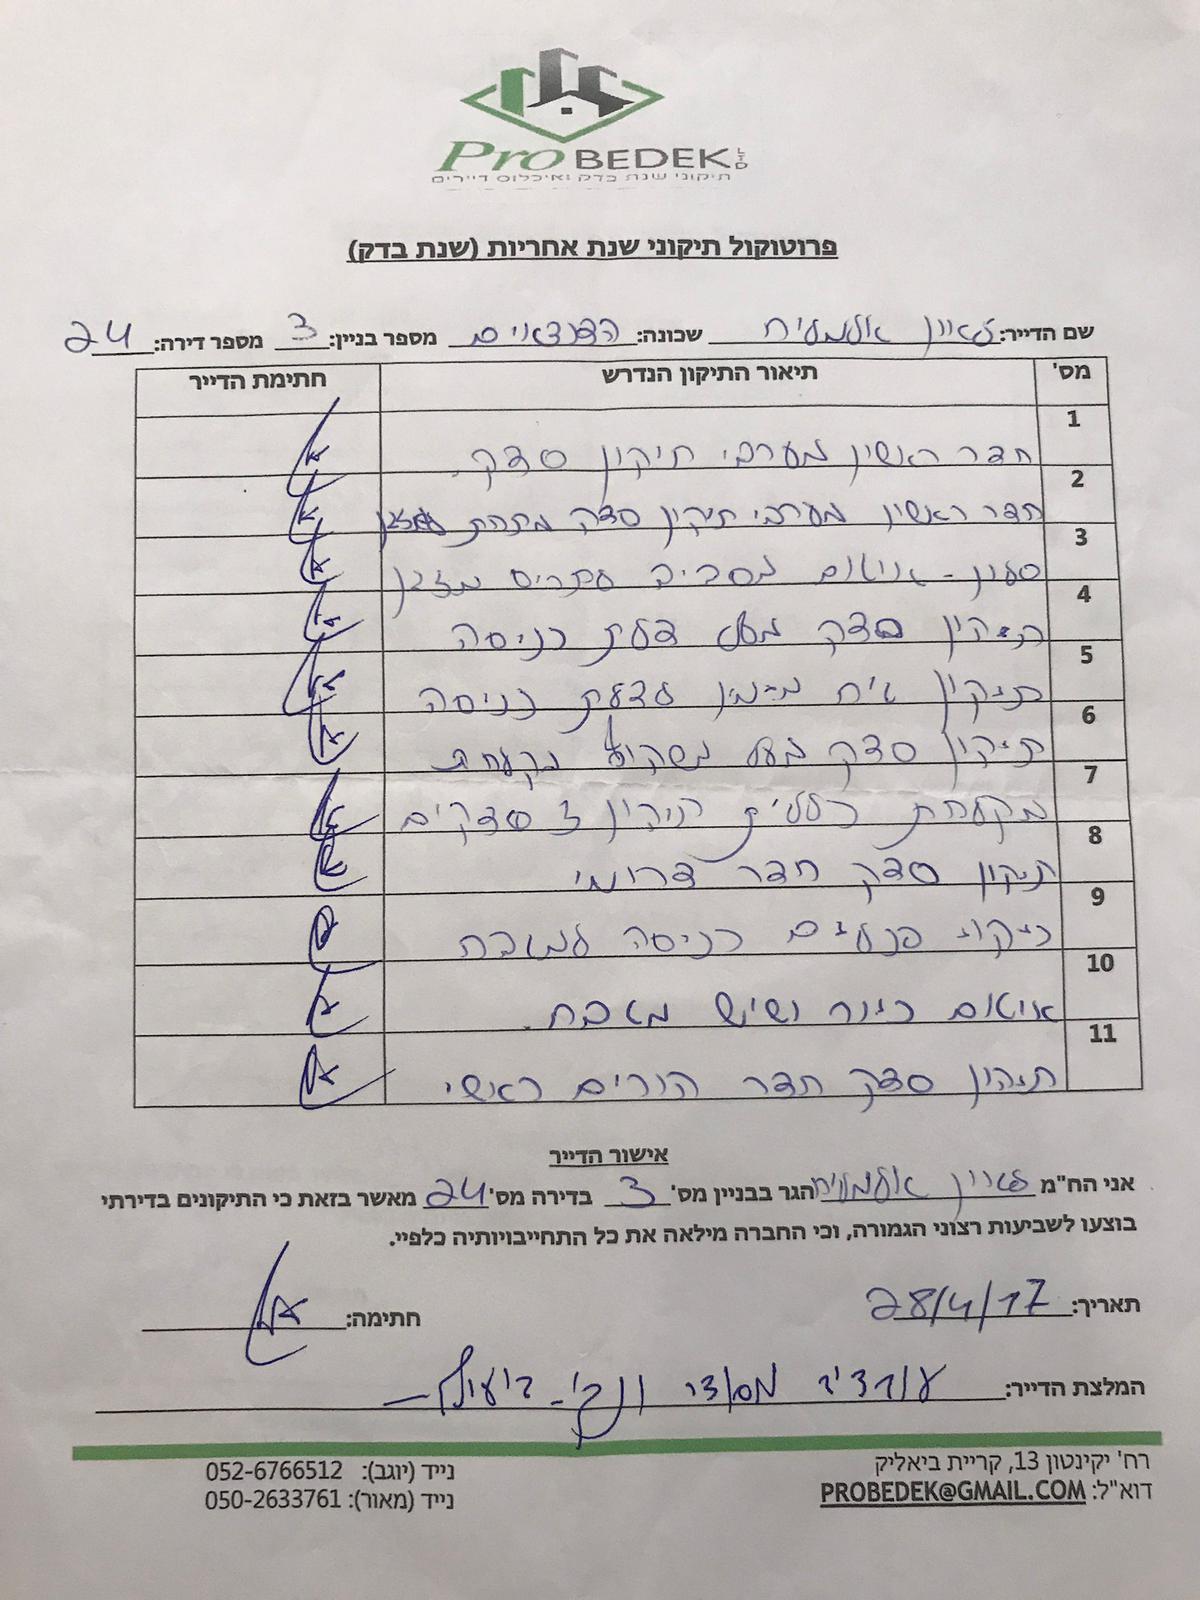 Pro BEDEK LTD
תיקוני שנת בדק ואיכלוס דיירים
פרוטוקול תיקוני שנת אחריות (שנת בדק)
שם הדייר: שכונה: מספר בניין: 3 מספר דירה: 24
מס' תיאור התיקון הנדרש חתימת הדייר
1 חדר ראשון מערבי תיקון סדק.
2 חדר ראשון מערבי תיקון סדק מתחת
3 סלון - איטום מסביב
4 תיקון סדק מעל דלת כניסה
5 תיקון מימין לדלת כניסה
6 תיקון סדק מעל משקוף מקלחת
7 מקלחת כללית תיקון 3 סדקים
8 תיקון סדק חדר דרומי
9 ניקוי פנלים כניסה למטבח
10 איטום כיור ושיש מטבח.
11 תיקון סדק חדר הורים ראשי
אישור הדייר
אני הח"מ הגר בבניין מס' 3 בדירה מס' 24 מאשר בזאת כי התיקונים בדירתי
בוצעו לשביעות רצוני הגמורה, וכי החברה מילאה את כל התחייבויותיה כלפיי.
תאריך: 28/4/17 חתימה:
המלצת הדייר: מסודר ונקי -
רח' יקינטון 13, קריית ביאליק
דוא"ל: PROBEDEK@GMAIL.COM
נייד (יוגב): 052-6766512
נייד (מאור): 050-2633761